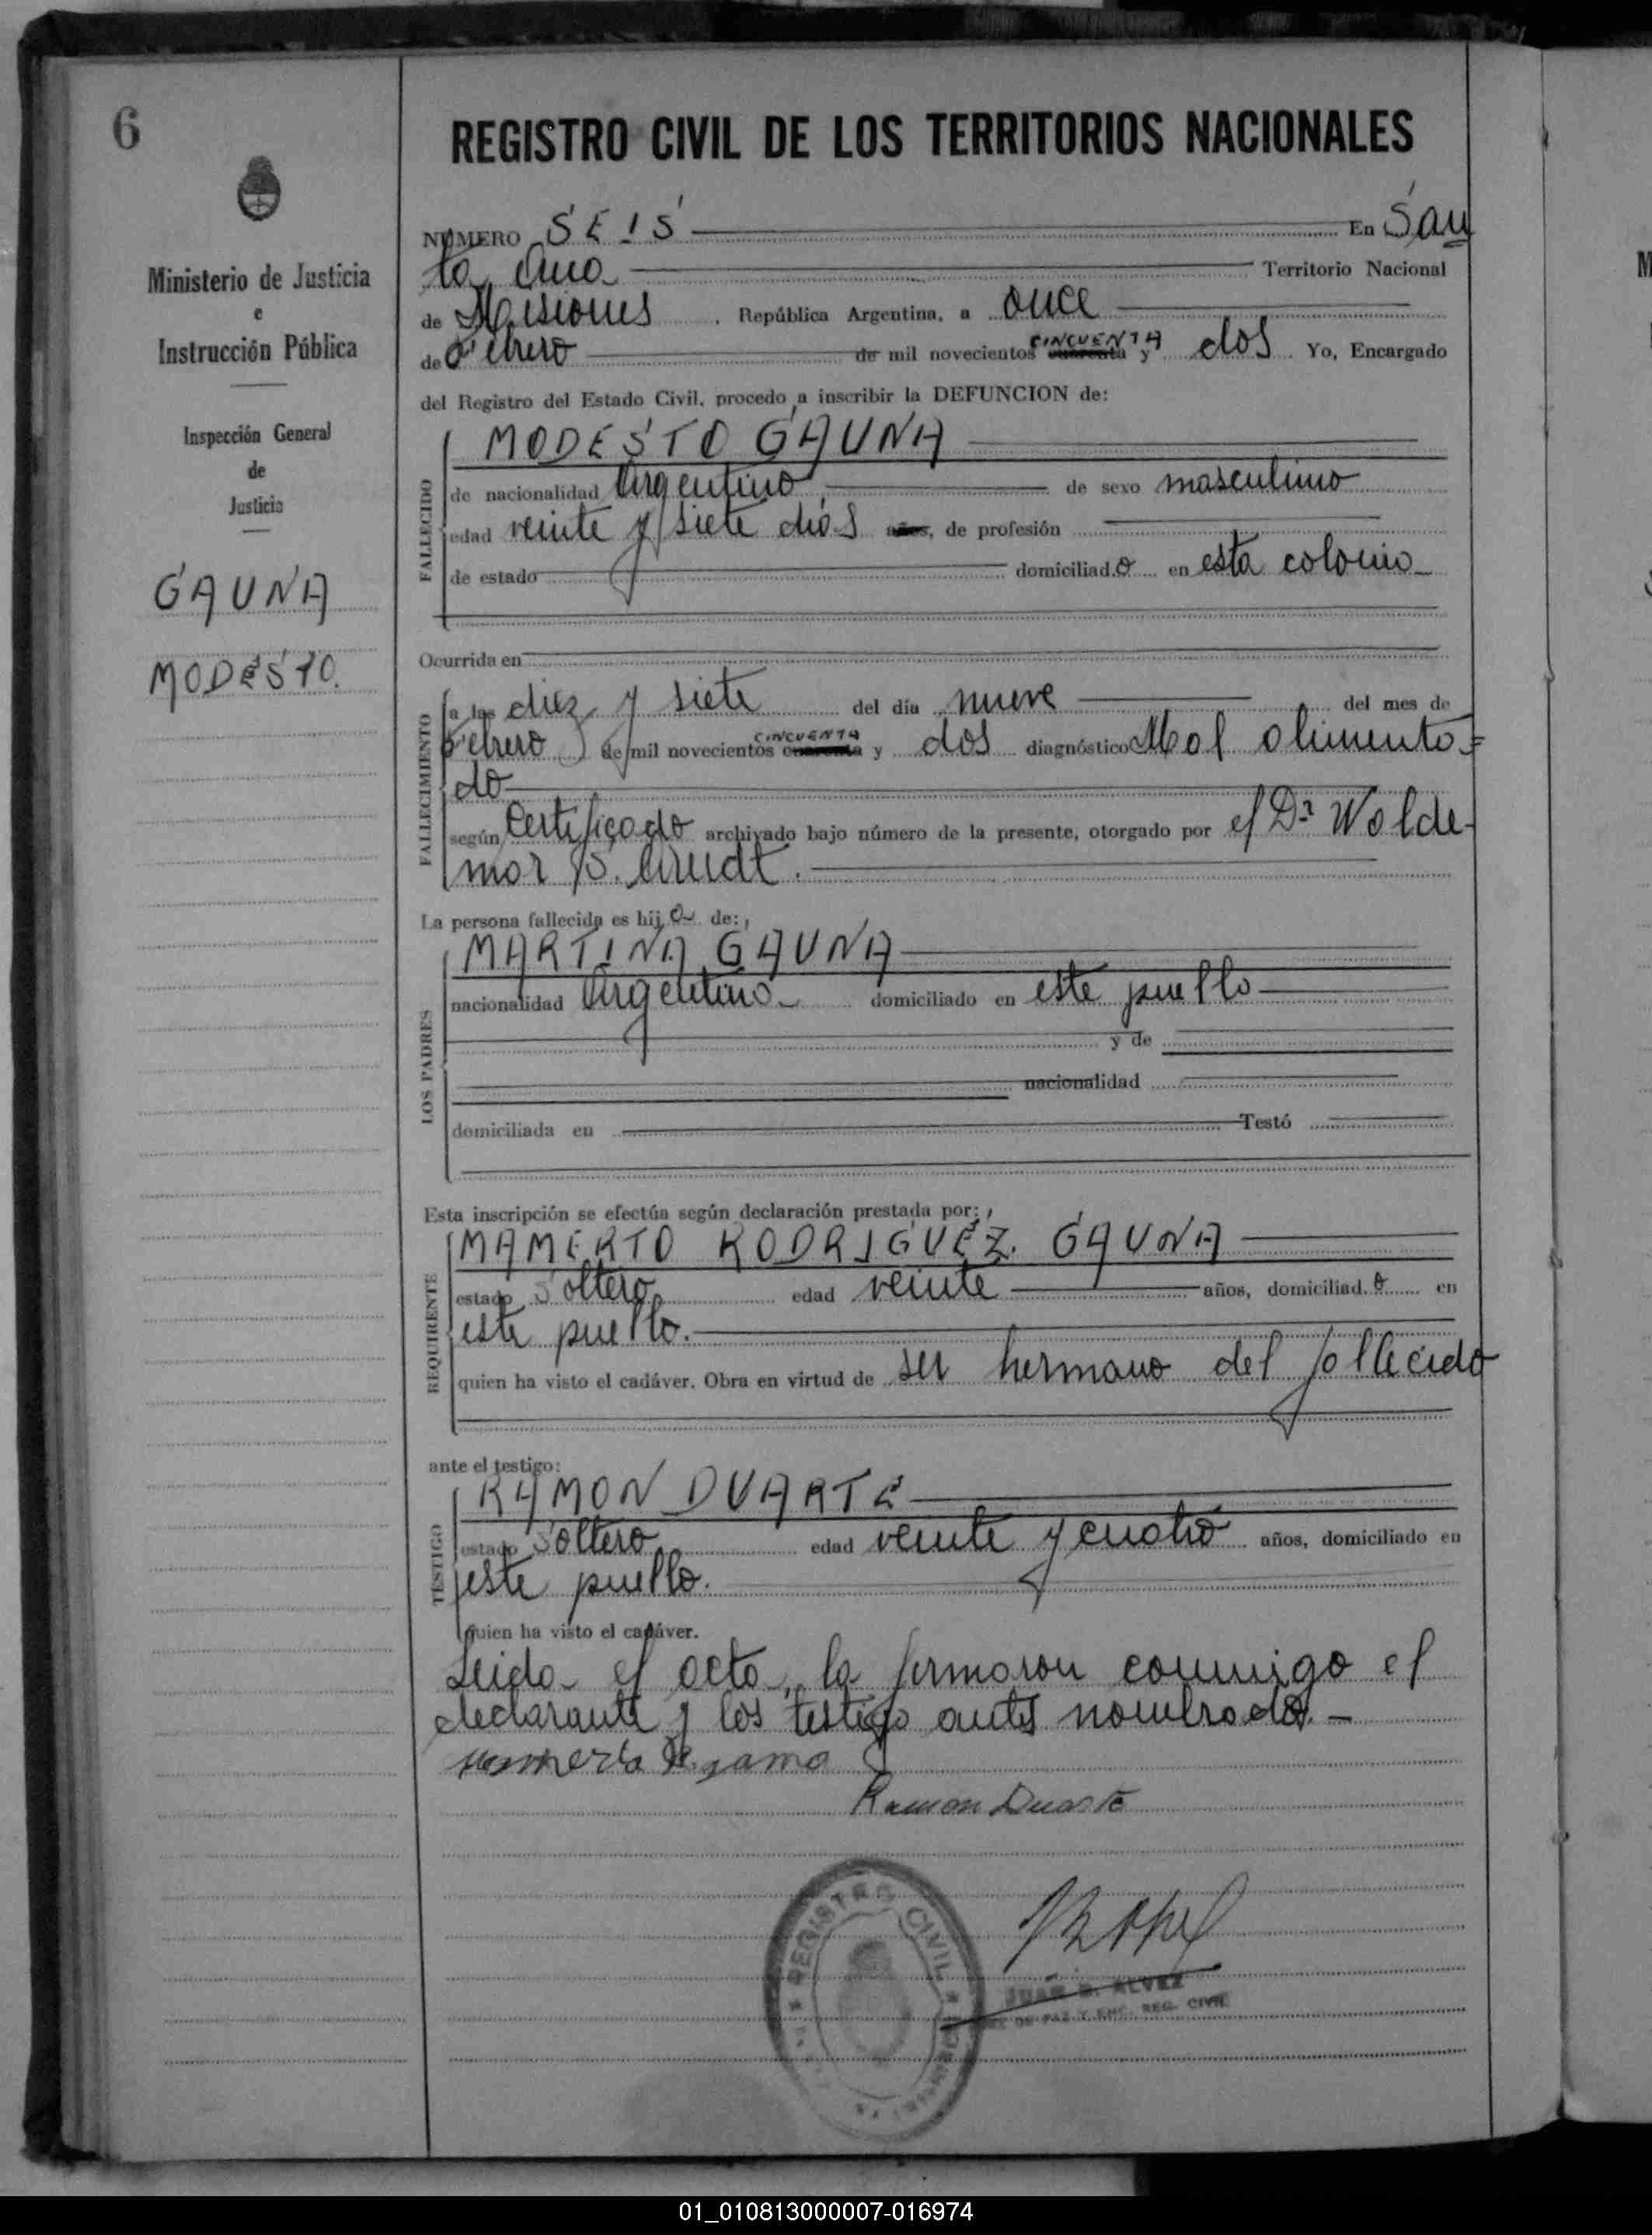 6
Ministerio de Justicia
e
Instrucción Pública
Inspección General
de
Justicia
GAUNA
MODESTO.
REGISTRO CIVIL DE LOS TERRITORIOS NACIONALES
NÚMERO SEIS En San
ta Ana Territorio Nacional
de Misiones República Argentina, a once
de Febrero de mil novecientos CINCUENTA y dos Yo, Encargado
del Registro del Estado Civil, procedo a inscribir la DEFUNCION de:
MODESTO GAUNA
FALLECIDO
de nacionalidad Argentino, de sexo masculino
edad veinte y siete dias años, de profesión
de estado domiciliado en esta colonia
Ocurrida en
FALLECIMIENTO
a las diez y siete del día nueve del mes de
Febrero de mil novecientos CINCUENTA y dos diagnóstico Mal alimenta=
do
según Certificado archivado bajo número de la presente, otorgado por el Dr. Walde-
mar B. Arndt.
La persona fallecida es hijo de:
MARTINA GAUNA
LOS PADRES
nacionalidad Argentina domiciliado en este pueblo
y de
nacionalidad
domiciliada en Testó
Esta inscripción se efectúa según declaración prestada por:
MAMERTO RODRIGUEZ GAUNA
REQUIRENTE
estado Soltero edad veinte años, domiciliado en
este pueblo.
quien ha visto el cadáver. Obra en virtud de ser hermano del fallecido
ante el testigo:
RAMON DUARTE
TESTIGO
estado Soltero edad veinte y cuatro años, domiciliado en
este pueblo.
quien ha visto el cadáver.
Leida el acta, la firmaron conmigo el
declarante y los testigo antes nombrado. -
Ramon Duarte
REGISTRO CIVIL
JUAN B. ALVEZ
DE PAZ Y ENC. REG. CIVIL
01_010813000007-016974